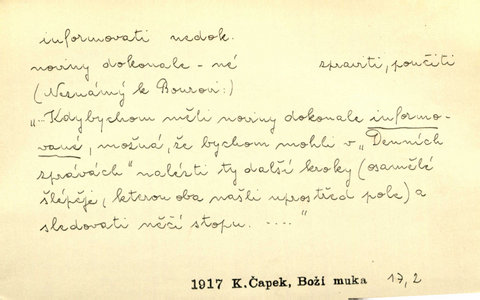 informovati nedok.
noviny dokonale - né zpravit, poučiti
(Neznámý k Bourovi:)
"... Kdybychom měli noviny dokonale informo-
vané, možná, že bychom mohli v „Denních
zprávách" nalézti ty další kroky (osamělé
šlépěje, kterou oba našli uprostřed pole) a
sledovati něčí stopu. ...."
1917 K.Čapek, Boží muka 17,2